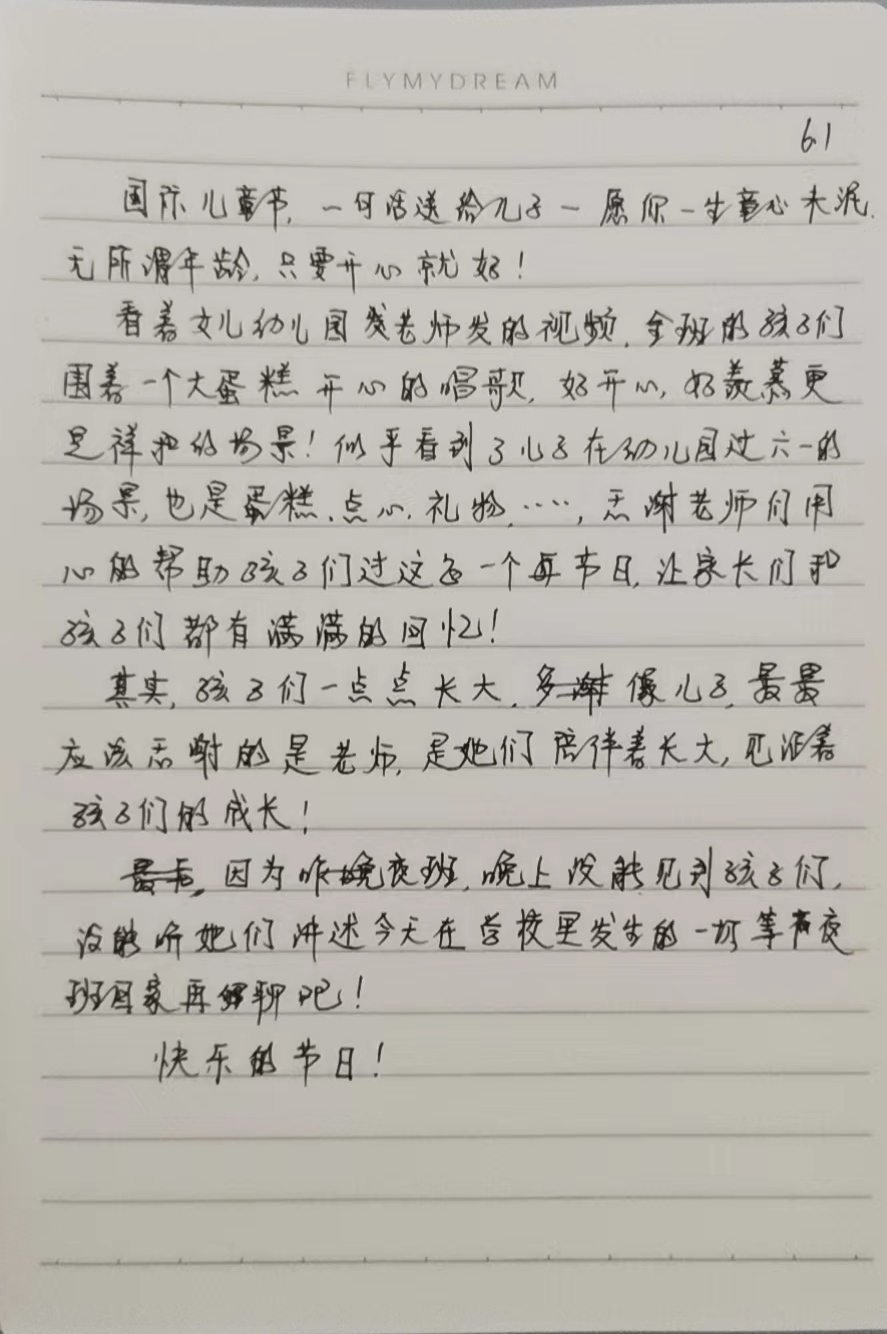 FLYMYDREAM
6.1
国际儿童节，一句话送给儿子一愿你一生童心未泯，
无所谓年龄，只要开心就好！
看着女儿幼儿园发老师发的视频，全班的孩子们
围着一个大蛋糕开心的唱歌，好开心，好羡慕更
是祥和的场景！似乎看到了儿子在幼儿园过六一的
场景，也是蛋糕、点心、礼物、……，感谢老师们用
心的帮助孩子们过这每一个节日，让家长们和
孩子们都有满满的回忆！
其实，孩子们一点点长大，像儿子，最最
应该感谢的是老师，是她们陪伴着长大，见证着
孩子们的成长！
因为夜班，晚上没能见到孩子们，
没能听她们讲述今天在学校里发生的一切等夜
班回家再聊吧！
快乐的节日！